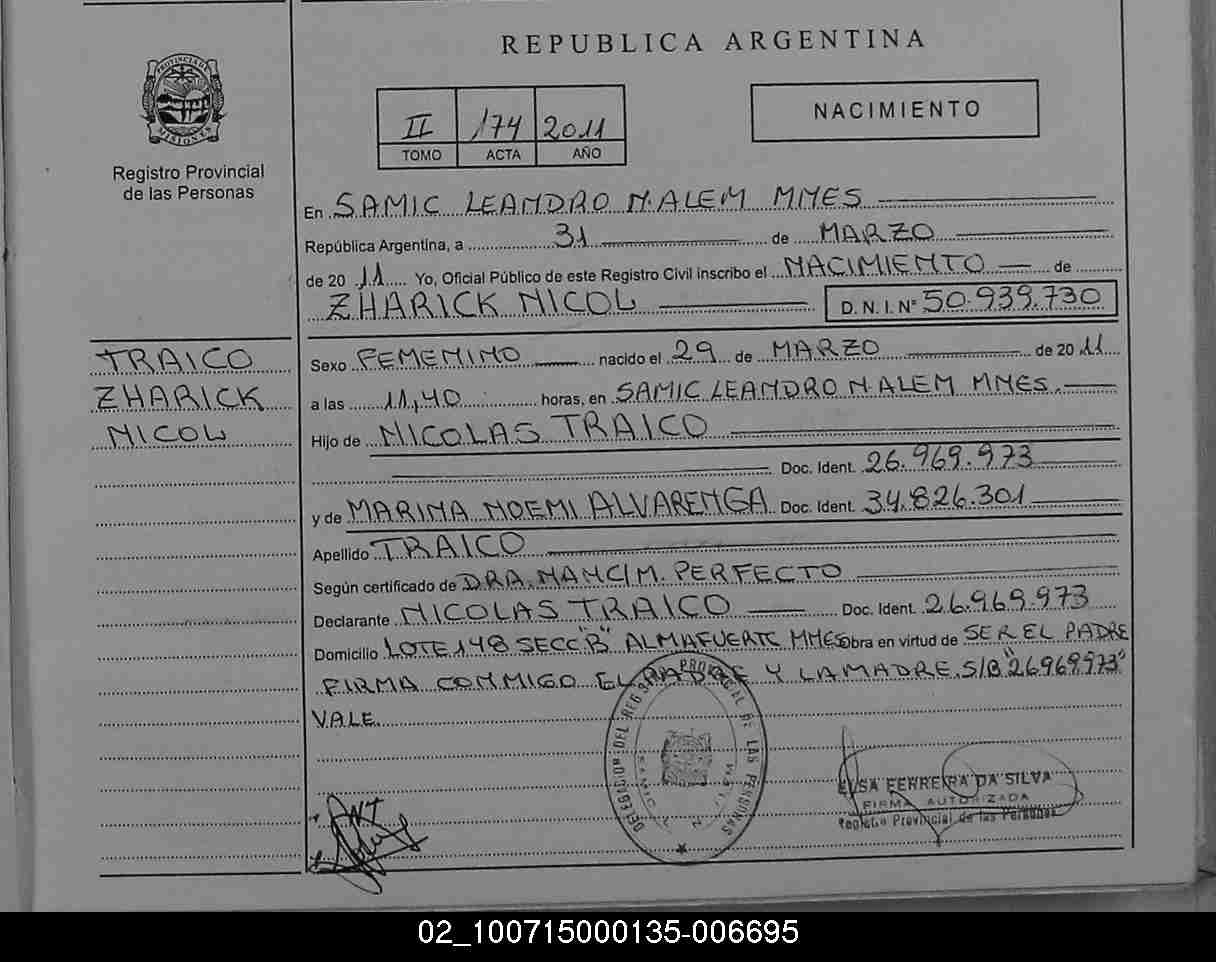 REPUBLICA ARGENTINA
PROVINCIA DE
MISIONES
Registro Provincial
de las Personas
II 174 2011
TOMO ACTA AÑO
NACIMIENTO
En SAMIC LEANDRO N. ALEM MNES
República Argentina, a 31 de MARZO
de 20 11 Yo, Oficial Público de este Registro Civil inscribo el NACIMIENTO de
ZHARICK NICOL D. N. I. Nº 50.939.730
TRAICO
ZHARICK
NICOL
Sexo FEMENINO nacido el 29 de MARZO de 20 11
a las 11,40 horas, en SAMIC LEANDRO N ALEM MNES.
Hijo de NICOLAS TRAICO
Doc. Ident. 26.969.973
y de MARINA NOEMI ALVARENGA Doc. Ident. 34.826.301
Apellido TRAICO
Según certificado de DRA. NANCI M. PERFECTO
Declarante NICOLAS TRAICO Doc. Ident. 26.969.973
Domicilio LOTE 148 SECC "B" ALMAFUERTE MNES Obra en virtud de SER EL PADRE
FIRMA CONMIGO EL PADRE Y LA MADRE. S/B "26969973"
VALE.
DELEGACION DEL REG. PROVINCIAL DE LAS PERSONAS
ELSA FERREIRA DA SILVA
FIRMA AUTORIZADA
Registro Provincial de las Personas
02_100715000135-006695